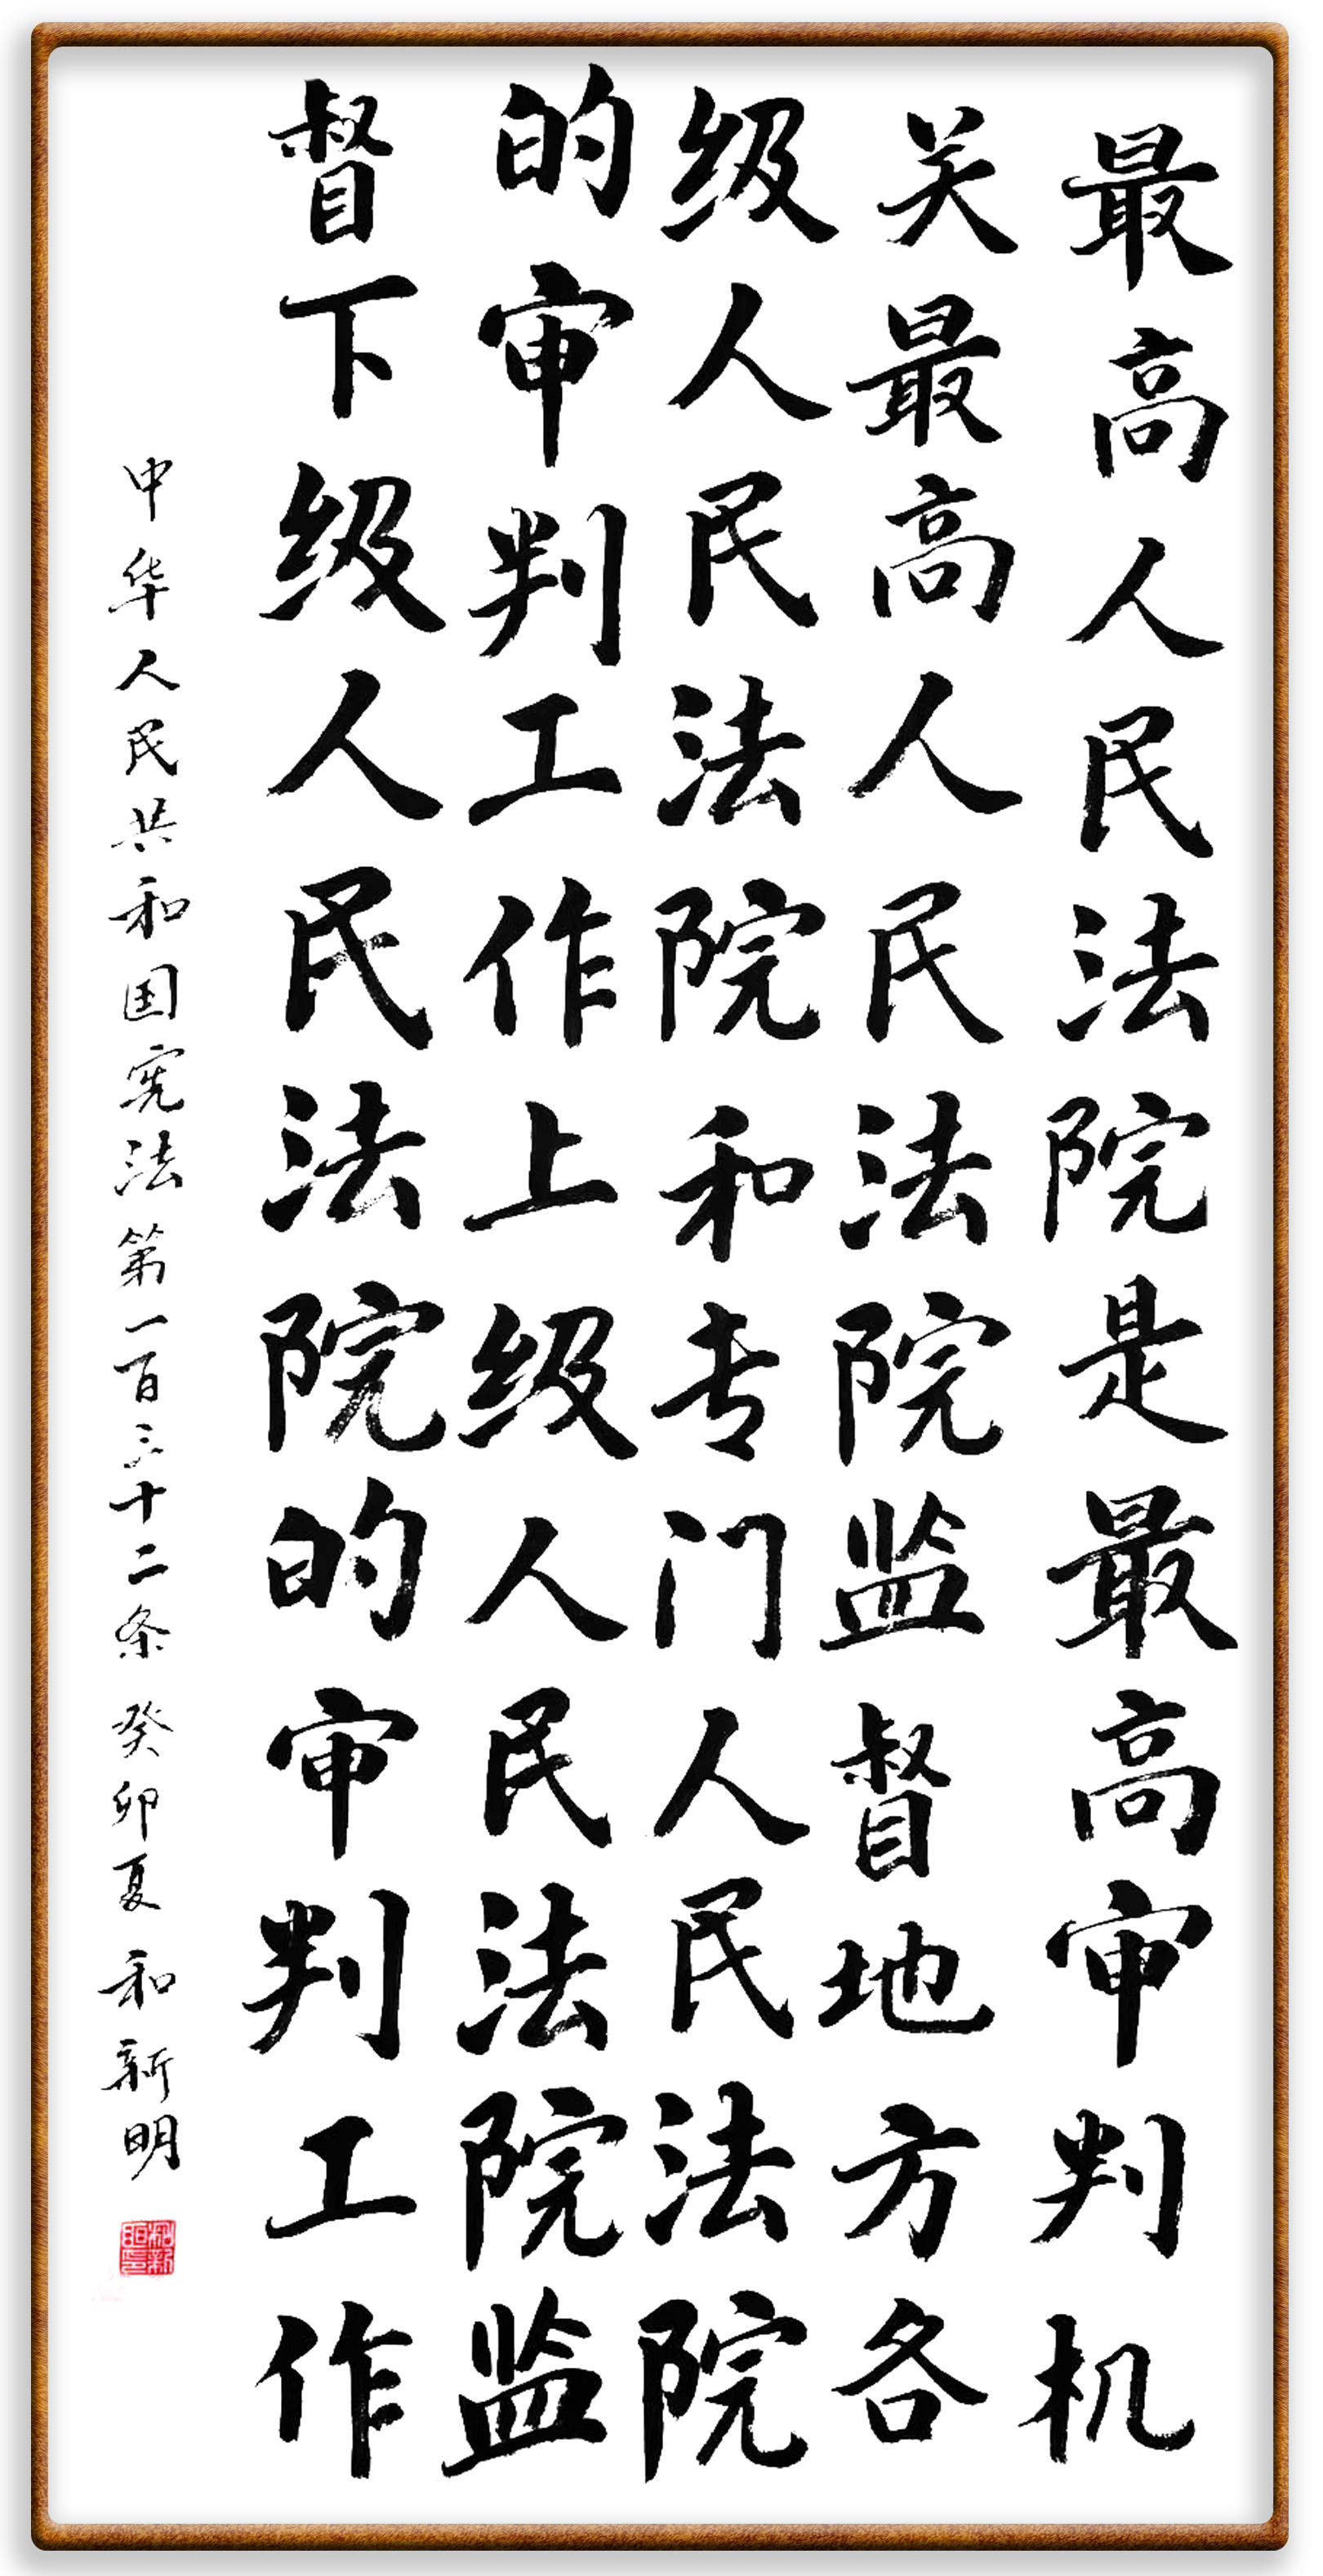 最高人民法院是最高审判机
关最高人民法院监督地方各
级人民法院和专门人民法院
的审判工作上级人民法院监
督下级人民法院的审判工作
中华人民共和国宪法第一百三十二条 癸卯夏 和新明